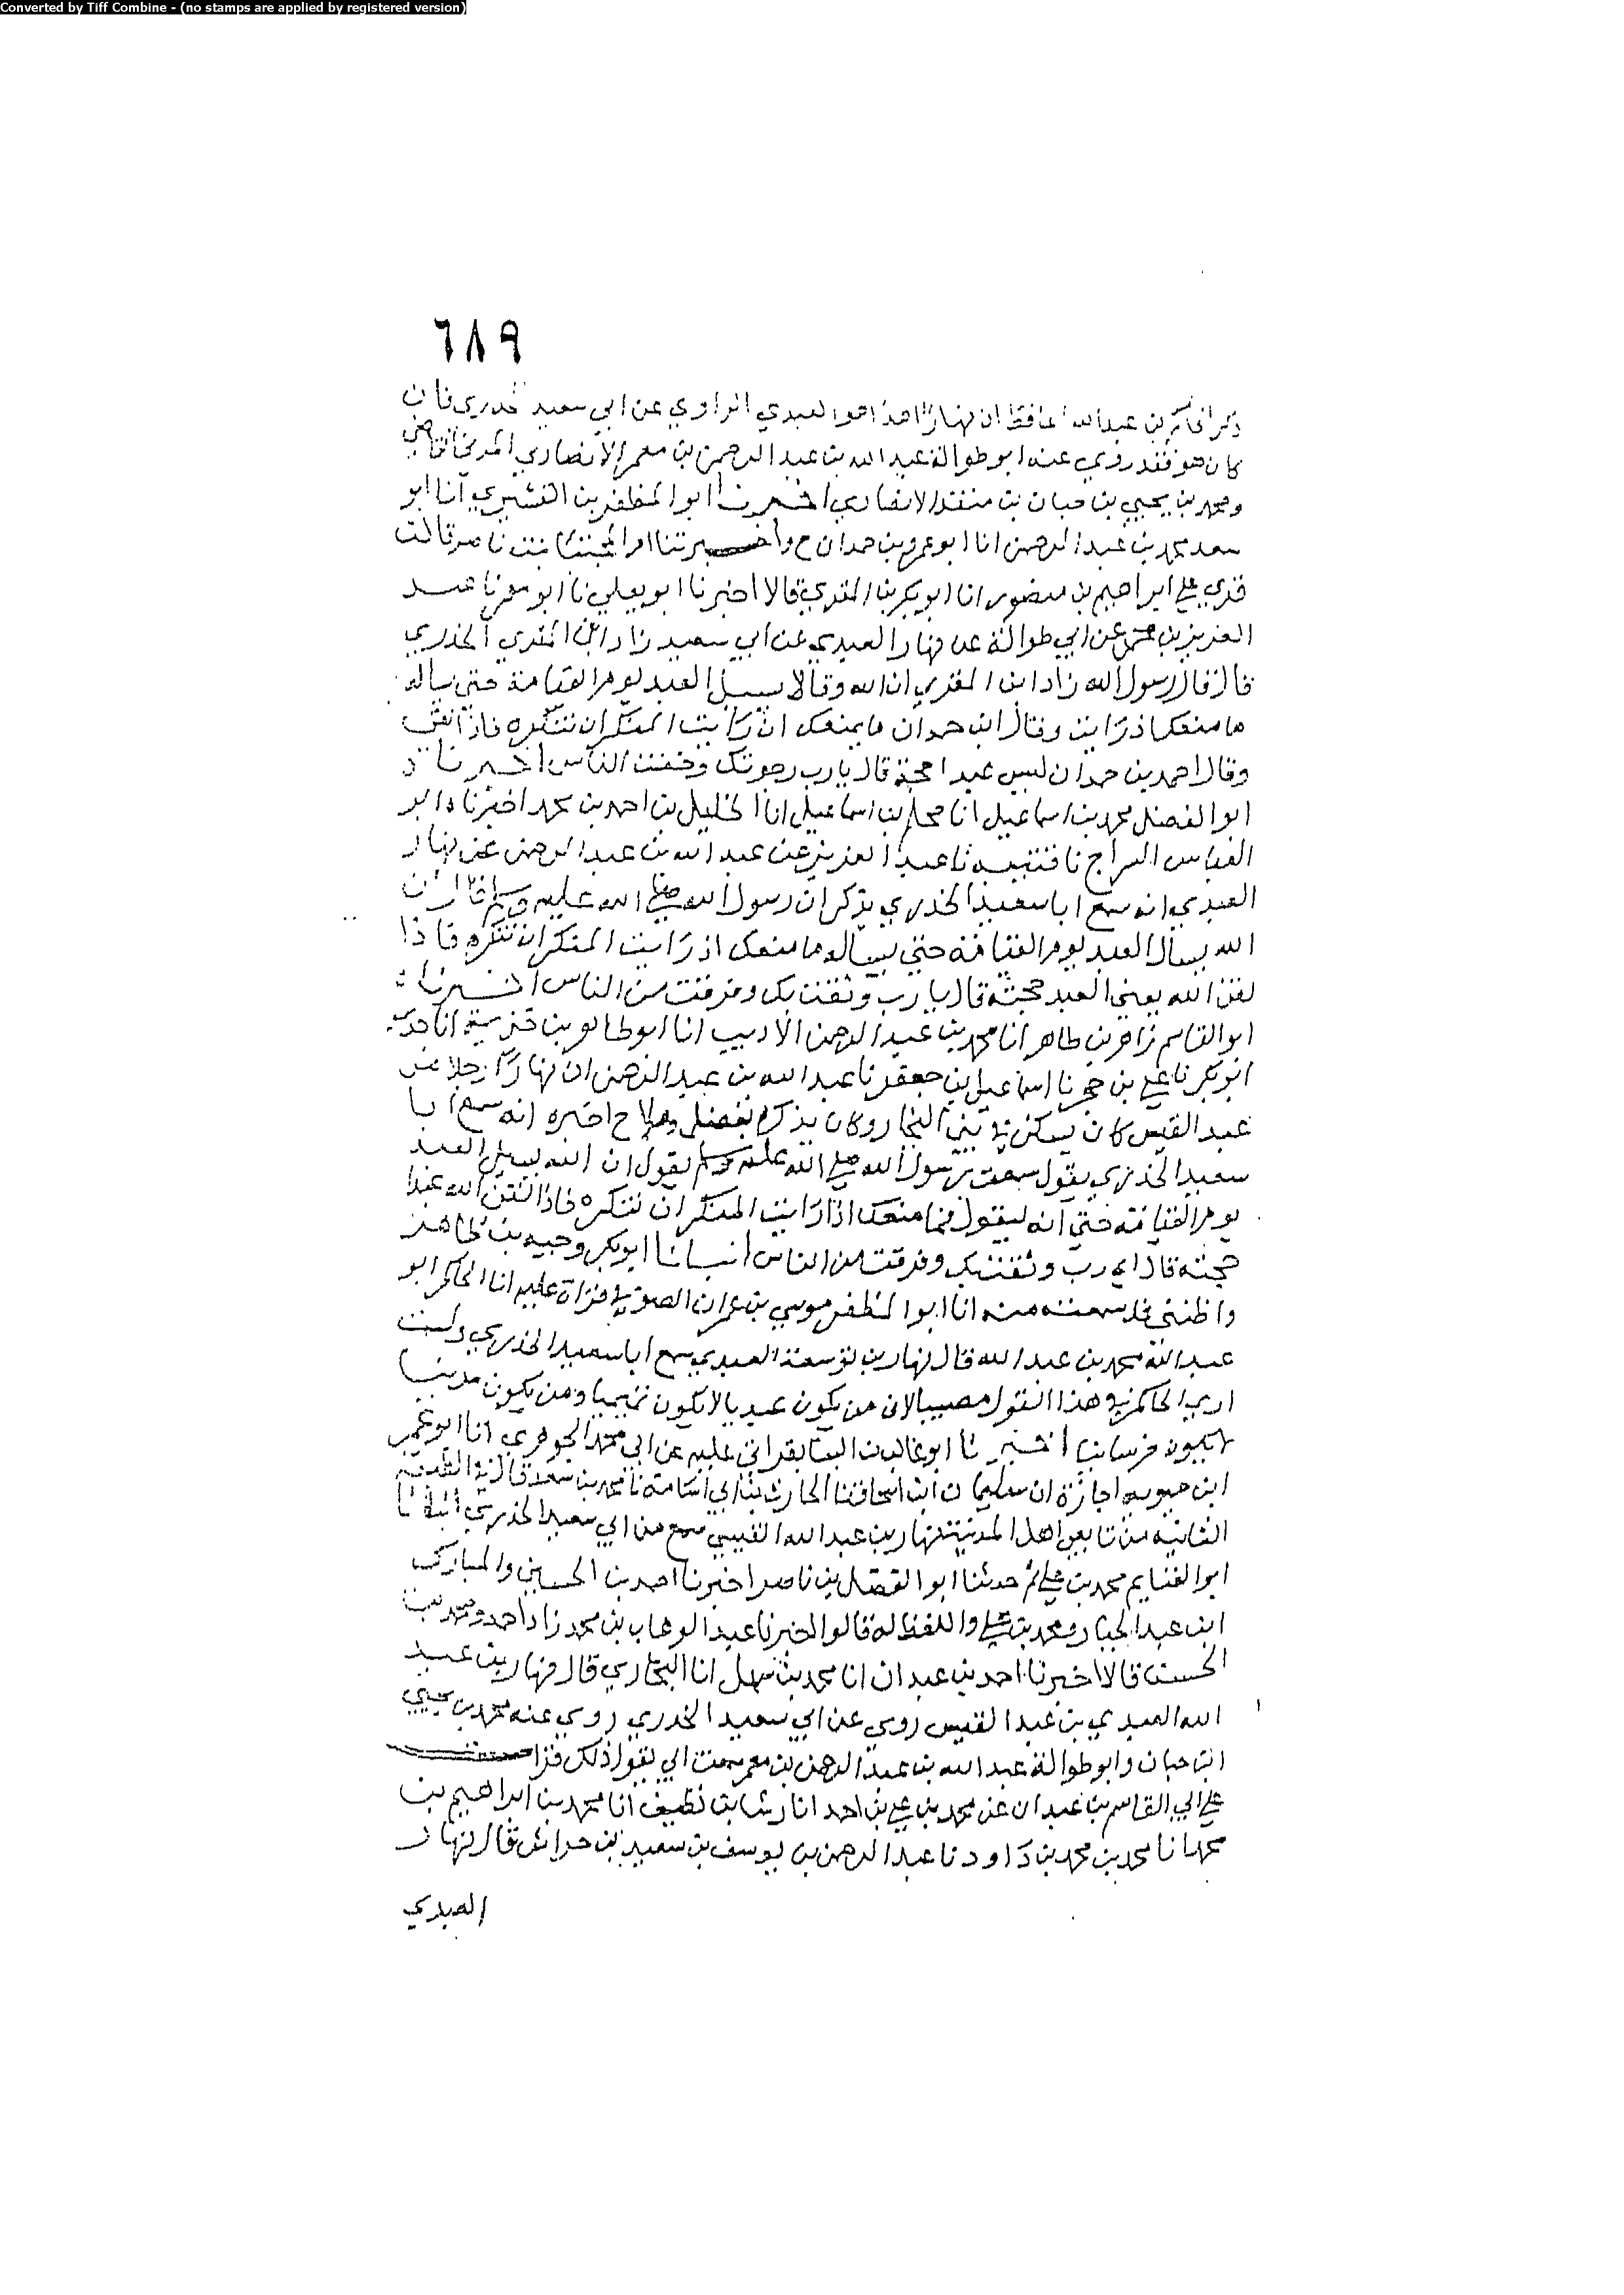 Converted by Tiff Combine - (no stamps are applied by registered version)
٦٨٩
ذكر الحاكم بن عبدالله الحافظ ان نهارا هذا هو العبدي الراوي عن ابي سعيد الخدري فان
كان هو فقد روي عنه ابو طوالة عبد الله بن عبد الرحمن بن معمر الانصاري المدني قاضي
ومحمد بن يحيي بن حبان بن منقذ الانصاري اخبرنا ابو المظفر بن القشيري انا ابو
سعد محمد بن عبد الرحمن انا ابو عمرو بن حمدان ح واخبرتنا ام المجتبا بنت ناصر قالت
قري علي ابراهيم بن منصور انا ابو بكر بن المقري قالا اخبرنا ابو يعلي نا ابو معمر نا عبد
العزيز بن محمد عن ابي طوالة عن نهار العبدي عن ابي سعيد زاد ابن المقري الخدري
قال قال رسول الله زاد ابن المقري ان الله وقالا يسيل العبد يوم القيامة حتي يساله
ما منعك اذ رايت وقال ابن حمدان ما يمنعك اذ رايت المنكر ان تنكره فاذا
وقال احمد بن حمدان ليس عبدا حجته قال يا رب رجوتك وخفت الناس اخبرنا
ابو الفضل محمد بن اسماعيل انا محلم بن اسماعيل انا الخليل بن احمد بن محمد اخبرنا ابو
العباس السراج نا قتيبه نا عبد العزيز عن عبد الله بن عبد الرحمن عن نهار
العبدي انه سمع ابا سعيد الخدري يذكر ان رسول الله صلي الله عليه وسلم قال ان
الله يسال العبد يوم القيامة حتي يساله ما منعك اذ رايت المنكر ان تنكره فاذا
لقن الله يعني العبد حجته قال يا رب وثقت بك وفرقت من الناس اخبرنا
ابو القاسم زاهر بن طاهر انا محمد بن عبد الرحمن الاديب انا ابو طاهر بن خزيمة انا جدي
ابو بكر نا علي بن حجر نا اسماعيل بن جعفر نا عبد الله بن عبد الرحمن ان نهارا رجلا من
عبد القيس كان يسكن في بني النجار وكان يذكر بفضل وصلاح اخبره انه سمع ابا
سعيد الخدري يقول سمعت رسول الله صلي الله عليه وسلم يقول ان الله يسيل العبد
يوم القيامة حتي انه ليقول فما منعك اذا رايت المنكر ان تنكره فاذا لقن الله عبدا
حجته قال اي رب وثقت بك وفرقت من الناس انبانا ابو بكر وجيه بن طاهر
واظنني قد سمعته منه انا ابو المظفر موسي بن عمران الصوفي قراة عليه انا الحاكم ابو
عبد الله محمد بن عبد الله قال نهار بن توسعة العبدي سمع ابا سعيد الخدري ولست
اري الحاكم في هذا القول مصيبا لان من يكون عبديا لا يكون تميميا ومن يكون مدنيا
لا يكون خرسانيا اخبرنا ابو غالب بن البنا بقراتي عليه عن ابي محمد الجوهري انا ابو عمر
ابن حيويه اجازة ان سليمان ابن اسحاق نا الحارث بن ابي اسامة نا محمد بن سعد قال في الطبقة
الثانيه من تابعي اهل المدينة نهار بن عبد الله القيسي سمع من ابي سعيد الخدري انبانا
ابو الغنايم محمد بن علي ثم حدثنا ابو الفضل بن ناصر اخبرنا احمد بن الحسين والمبارك
ابن عبد الجبار ومحمد بن علي واللفظ له قالوا اخبرنا عبد الوهاب بن محمد زاد احمد ومحمد بن
الحسن قالا اخبرنا احمد بن عبدان انا محمد بن سهل انا البخاري قال نهار بن عبد
الله العبدي بن عبد القيس روي عن ابي سعيد الخدري روي عنه محمد بن يحيي
ابن حبان وابو طوالة عبد الله بن عبد الرحمن بن معمر سمعت ابي يقول ذلك قرات
علي ابي القاسم بن عبدان عن محمد بن علي بن احمد انا رشا بن نظيف انا محمد بن ابراهيم بن
محمد انا محمد بن محمد بن داود نا عبد الرحمن بن يوسف بن سعيد بن خراش قال نهار
العبدي